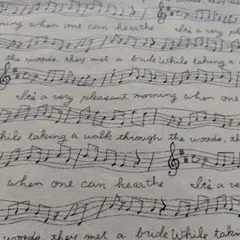 ning when one can hear the It's a very pleas
the woods, they met a bride While taking a
It's a very pleasant morning when one
While taking a walk through the woods, th
when one can hear the It's a ver
woods, they met a bride While taking